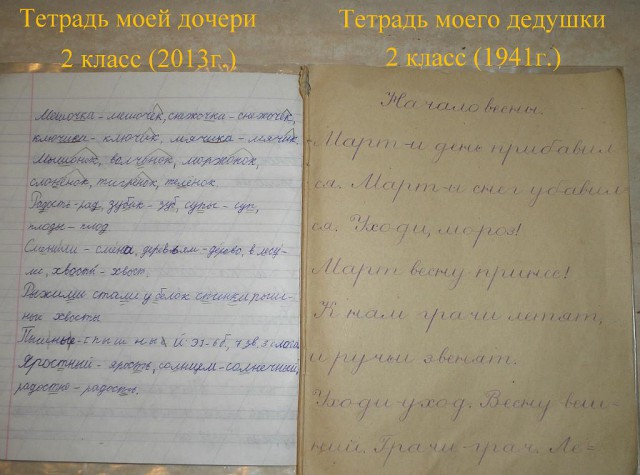 Тетрадь моей дочери
2 класс (2013г.)
Тетрадь моего дедушки
2 класс (1941г.)
Мешочка - мешочек, снежочка - снежочек,
ключика - ключик, мячика - мячик,
Мышонок, волчонок, моржонок,
слонёнок, тигрёнок, телёнок.
Радость - рад, зубы - зуб, супы - суп,
плоды - плод.
Сливы - слива, деревья - дерево, в
ли, хвосты - хвост.
Рыжими стали у белок спинки
ные хвосты.
Пышные
Яростный - ярость, солнцем - солнечный,
радостно - радость.
Начало весны.
Март-и день прибавил
ся. Март-и снег убавил
ся. Уходи, мороз!
Март весну принес!
К нам грачи летят,
и ручьи звенят.
Уходи-уход. Весну-весен
ний. Грачи-грач. Ле=